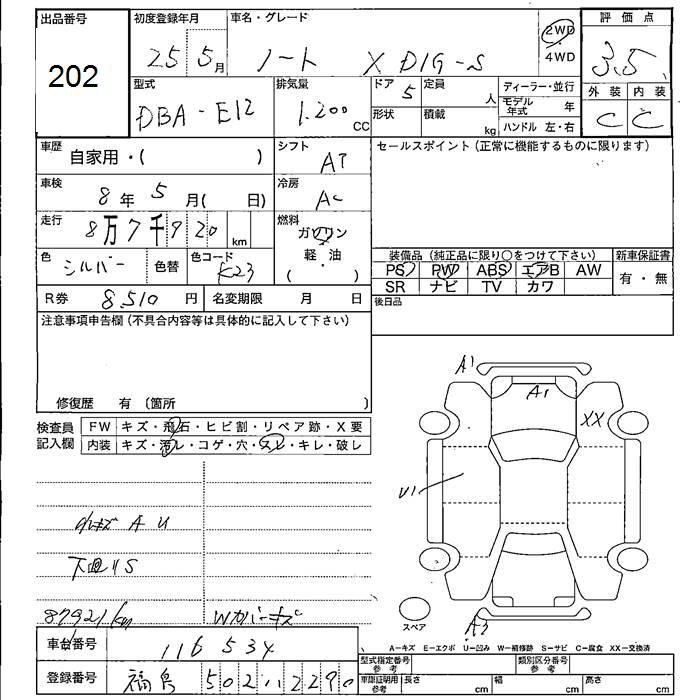 出品番号 202
初度登録年月 25 5月
車名・グレード ノート X DIG-S
2WD・4WD
評価点 3.5
外装 内装
C C
型式 DBA-E12
排気量 1.200 CC
ドア 5 定員 人
形状 積載 kg
ディーラー・並行
モデル年式 年
ハンドル 左・右
車歴 自家用・( )
シフト AT
セールスポイント(正常に機能するものに限ります)
車検 8年 5月( 日)
冷房 AC
走行 8万7千920 km
燃料 ガソリン・軽油・( )
色 シルバー 色替
色コード K23
装備品(純正品に限り○をつけて下さい)
PS PW ABS エアB AW
SR ナビ TV カワ
新車保証書 有・無
R券 8510円 名変期限 月 日
後日品
注意事項申告欄(不具合内容等は具体的に記入して下さい)
修復歴 有 〔箇所 〕
検査員記入欄
FW キズ・飛石・ヒビ割・リペア跡・X要
内装 キズ・汚レ・コゲ・穴・スレ・キレ・破レ
A1
A1
XX
U1
小キズ A U
下廻りS
87921km Wカバーキズ
スペア
A3
A-キズ E-エクボ U-凹み W-補修跡 S-サビ C-腐食 XX-交換済
車台番号 116534
型式指定番号 参考
類別区分番号 参考
登録番号 福島 502
車庫証明用 参考 長さ cm 幅 cm 高さ cm